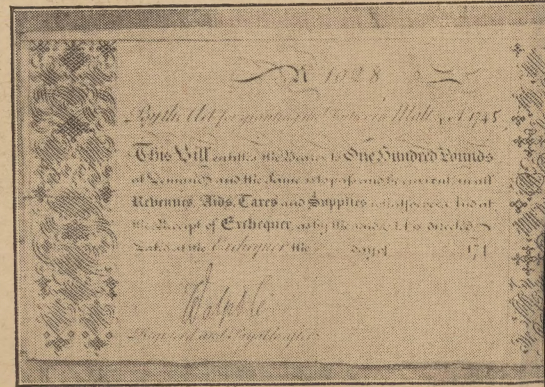 No 1028
By the Act for granting the Duties on Malt 1745,
This Bill entitles the Bearer to One Hundred Pounds
at Demand and the Same is to pass and be current in all
Revenues, Aids, Taxes and Supplies whatsoever And at
the Receipt of Exchequer as by the said Act is directed
Dated at the Exchequer the day of 174
Walpole